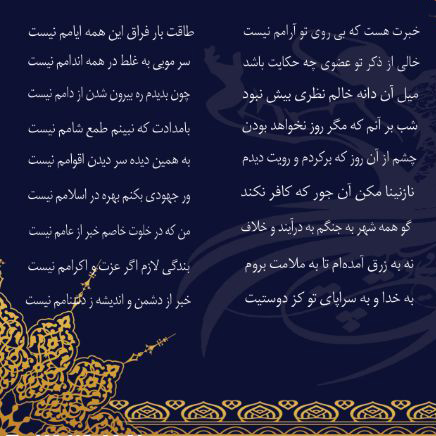 خبرت هست که بی روی تو آرامم نیست طاقت بار فراق این همه ایامم نیست
خالی از ذکر تو عضوی چه حکایت باشد سر مویی به غلط در همه اندامم نیست
میل آن دانه خالم نظری بیش نبود چون بدیدم ره بیرون شدن از دامم نیست
شب بر آنم که مگر روز نخواهد بودن بامدادت که نبینم طمع شامم نیست
چشم از آن روز که برکردم و رویت دیدم به همین دیده سر دیدن اقوامم نیست
نازنینا مکن آن جور که کافر نکند ور جهودی بکنم بهره در اسلامم نیست
گو همه شهر به جنگم به درآیند و خلاف من که در خلوت خاصم خبر از عامم نیست
نه به زرق آمده‌ام تا به ملامت بروم بندگی لازم اگر عزت و اکرامم نیست
به خدا و به سراپای تو کز دوستیت خبر از دشمن و اندیشه ز دشنامم نیست